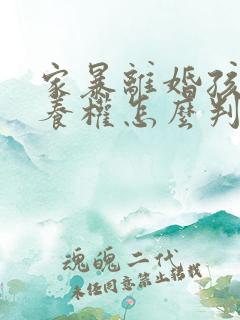 家暴離婚孩
養權怎麼判
魂魄二代
未经同意禁止转载